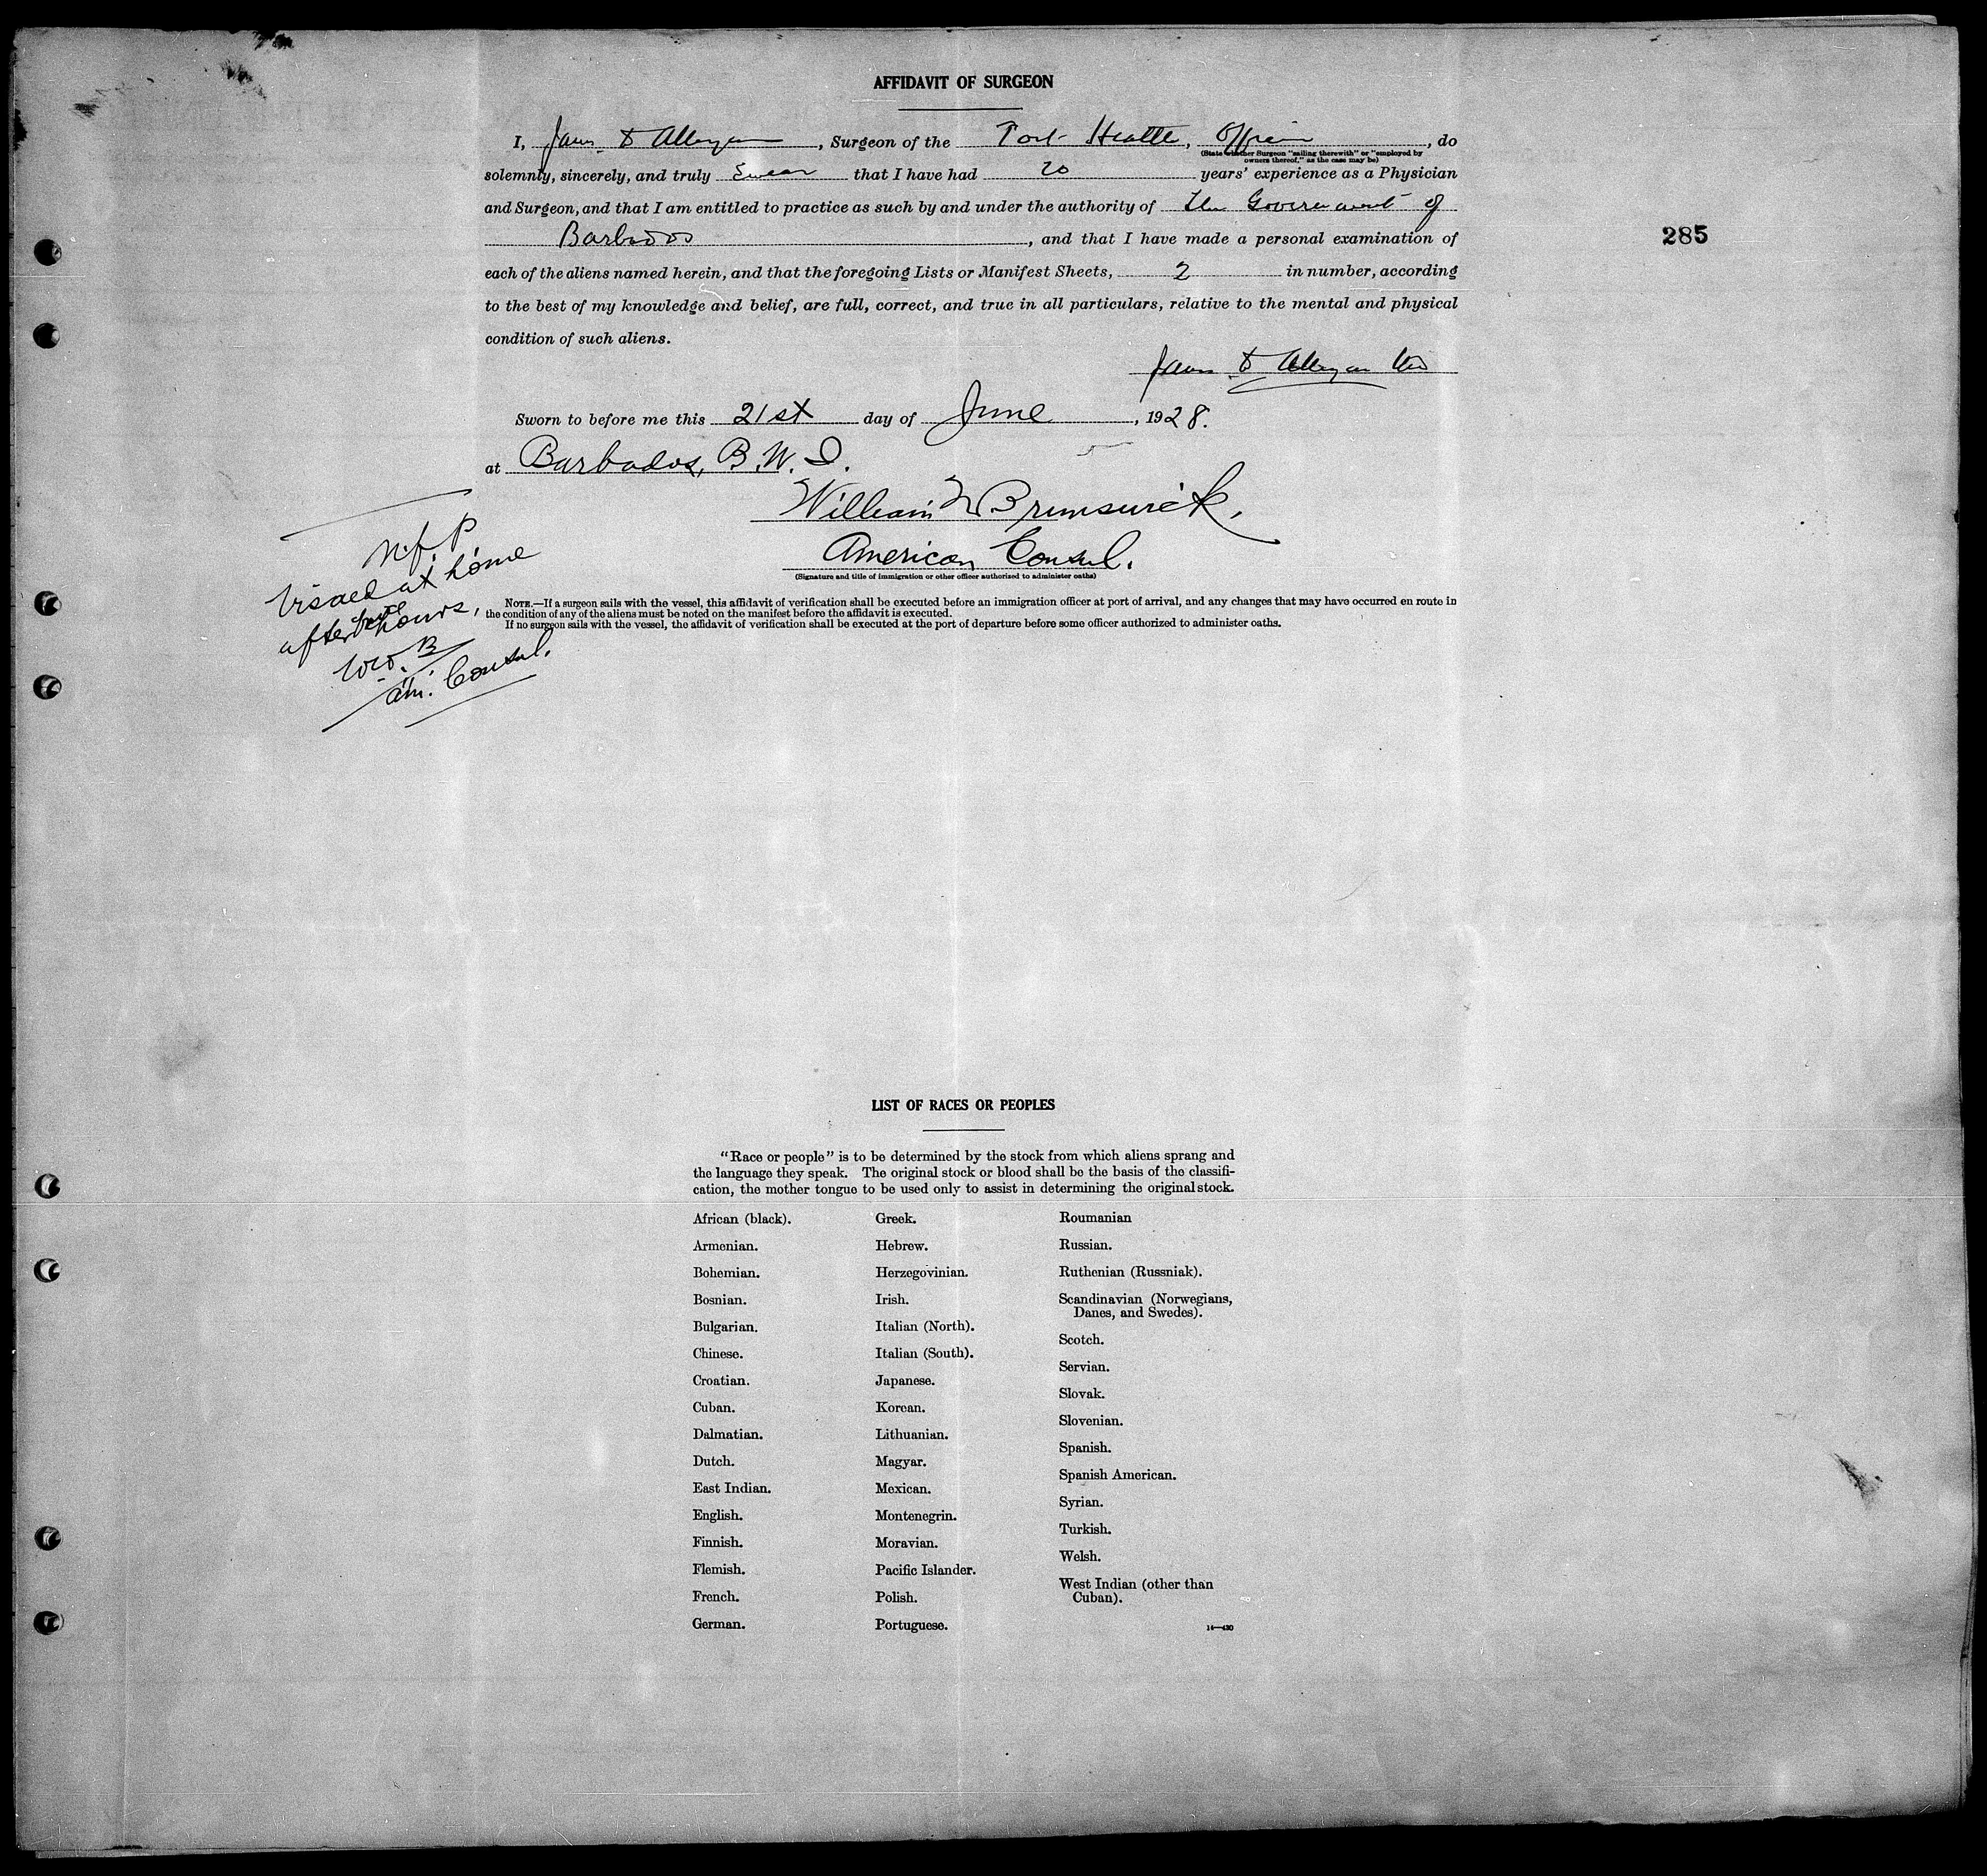 AFFIDAVIT OF SURGEON
I, James D Alleyne, Surgeon of the Port Health, Officer, do
(State whether Surgeon "sailing therewith" or "employed by
owners thereof," as the case may be)
solemnly, sincerely, and truly Swear that I have had 20 years' experience as a Physician
and Surgeon, and that I am entitled to practice as such by and under the authority of The Government of
Barbados, and that I have made a personal examination of
285
each of the aliens named herein, and that the foregoing Lists or Manifest Sheets, 2 in number, according
to the best of my knowledge and belief, are full, correct, and true in all particulars, relative to the mental and physical
condition of such aliens.
James D Alleyne
Sworn to before me this 21st day of June, 1928.
at Barbados, B.W.I.
William W Brunswick,
American Consul.
(Signature and title of immigration or other officer authorized to administer oaths)
N.f.P.
Visaed at home
after hours,
W.W.B
Am. Consul.
NOTE.—If a surgeon sails with the vessel, this affidavit of verification shall be executed before an immigration officer at port of arrival, and any changes that may have occurred en route in
the condition of any of the aliens must be noted on the manifest before the affidavit is executed.
If no surgeon sails with the vessel, the affidavit of verification shall be executed at the port of departure before some officer authorized to administer oaths.
LIST OF RACES OR PEOPLES
"Race or people" is to be determined by the stock from which aliens sprang and
the language they speak. The original stock or blood shall be the basis of the classifi-
cation, the mother tongue to be used only to assist in determining the original stock.
African (black).
Armenian.
Bohemian.
Bosnian.
Bulgarian.
Chinese.
Croatian.
Cuban.
Dalmatian.
Dutch.
East Indian.
English.
Finnish.
Flemish.
French.
German.
Greek.
Hebrew.
Herzegovinian.
Irish.
Italian (North).
Italian (South).
Japanese.
Korean.
Lithuanian.
Magyar.
Mexican.
Montenegrin.
Moravian.
Pacific Islander.
Polish.
Portuguese.
Roumanian
Russian.
Ruthenian (Russniak).
Scandinavian (Norwegians,
Danes, and Swedes).
Scotch.
Servian.
Slovak.
Slovenian.
Spanish.
Spanish American.
Syrian.
Turkish.
Welsh.
West Indian (other than
Cuban).
14—430